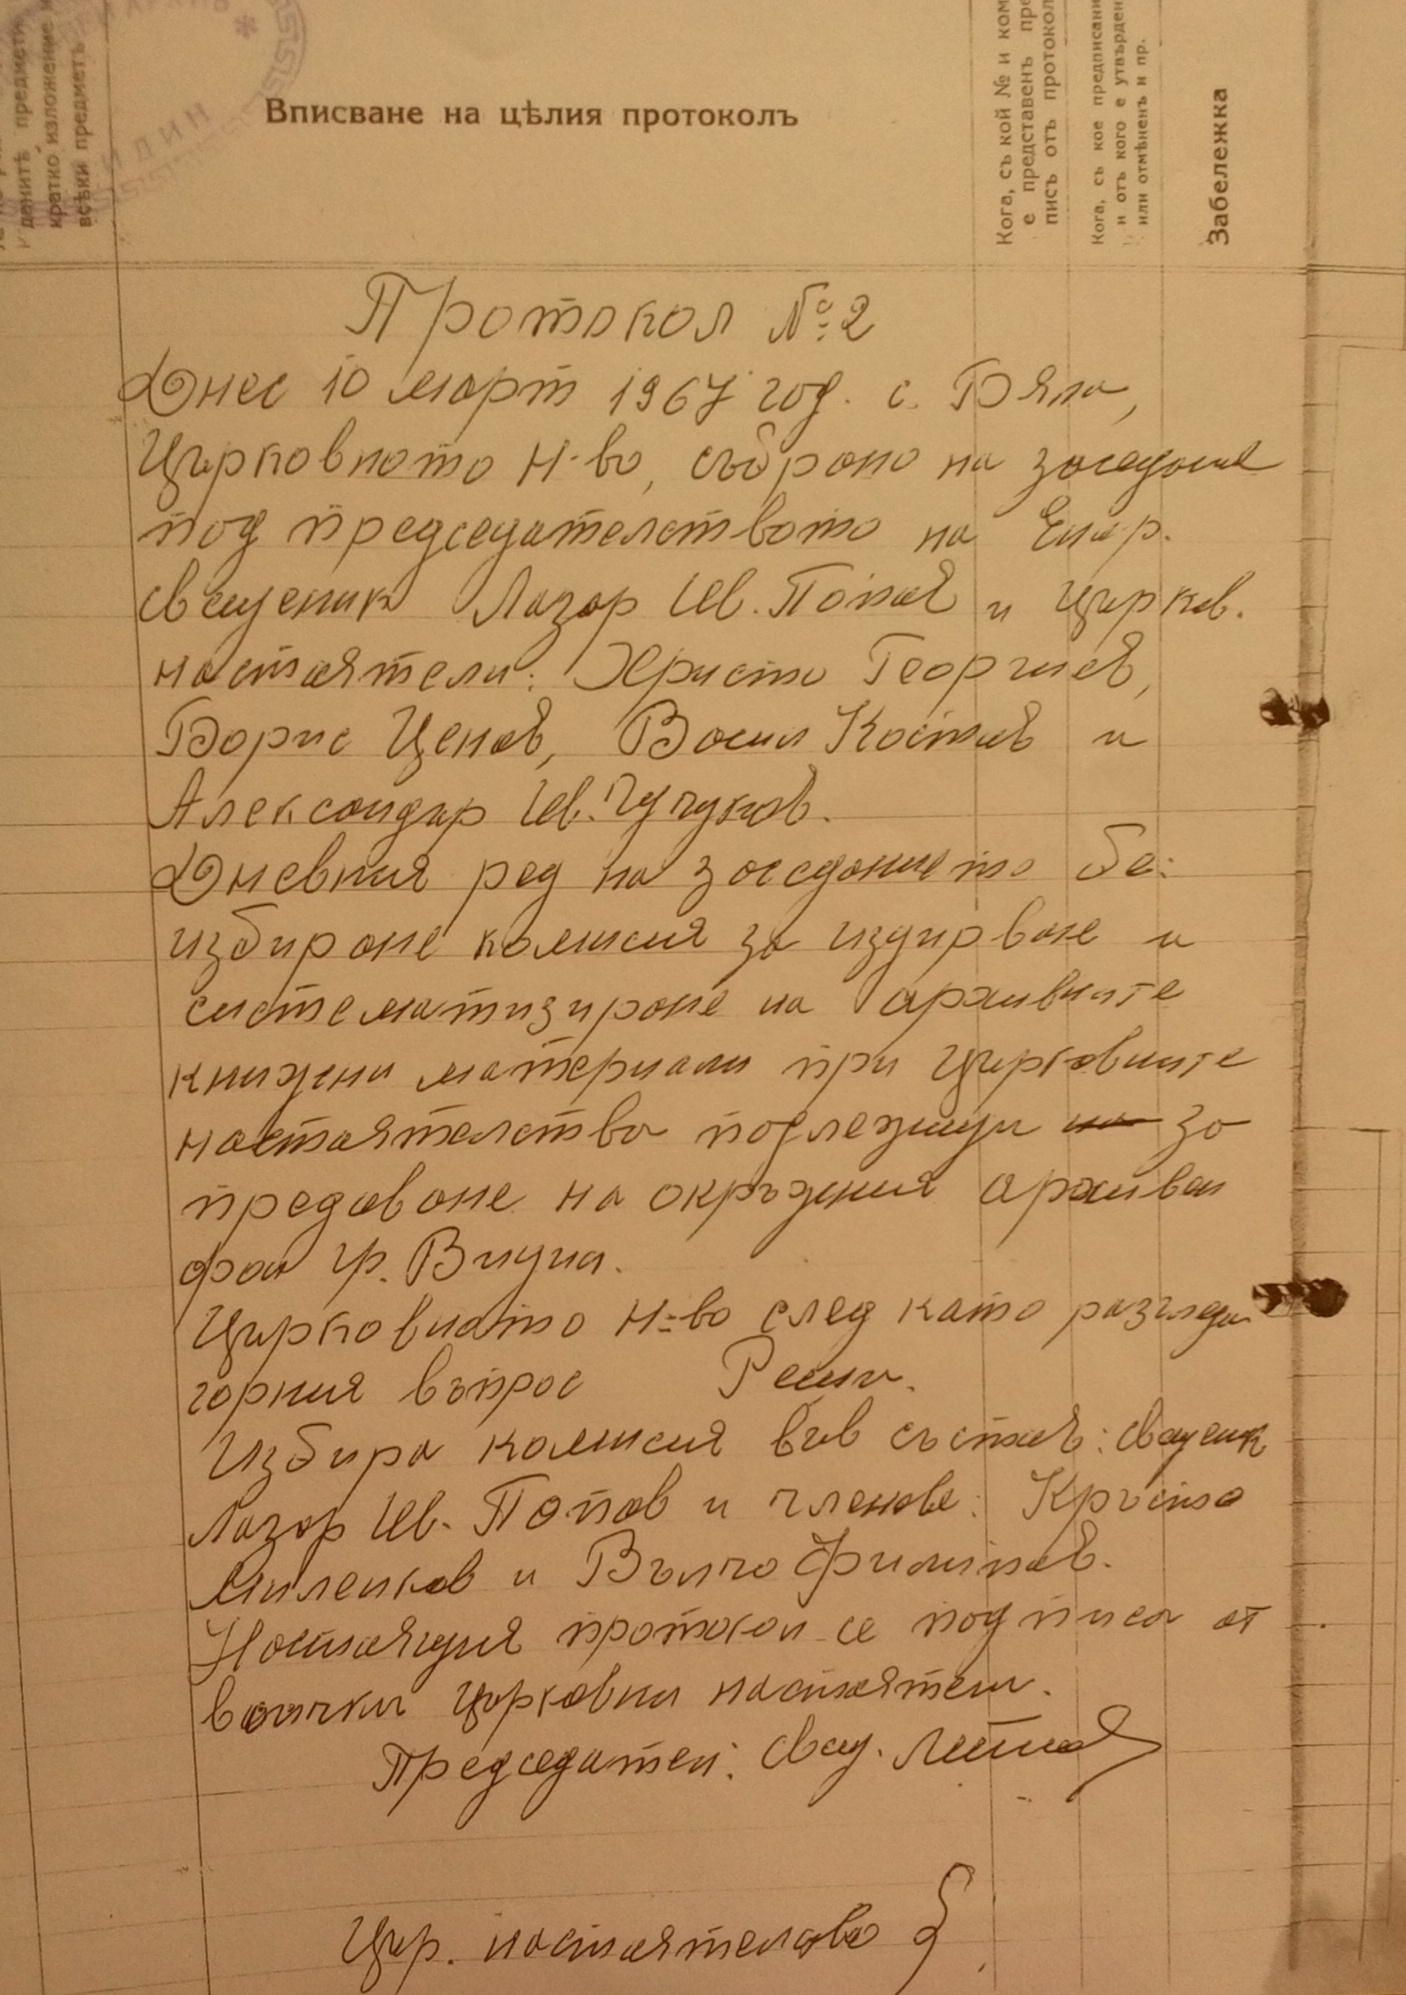 денитѣ предмети
кратко изложение
всѣки предметъ
ВИДИН
Вписване на цѣлия протоколъ
Кога, съ кой № и
е представенъ
писъ отъ протокол
Кога, съ кое предписани
и отъ кого е утвърден
или отмѣненъ и пр.
Забележка
Протокол №: 2
Днес 10 март 1967 год. с. Бяла,
Църковното Н-во, събрано на заседание
под председателството на Енор.
свещеник Лазар Ив. Попов и църков.
настоятели: Христо Георгиев,
Борис Ценов, Васил Костов и
Александър Ив. Чучуков.
Дневния ред на заседанието бе:
избиране комисия за издирване и
систематизиране на архивните
книжни материали при църковните
настоятелства подлежащи на за
предаване на окръжния архивен
фон гр. Видин.
Църковното Н-во след като разгледа
горния въпрос Реши.
Избира комисия във състав: свещеник
Лазар Ив. Попов и членове: Кръсто
Миленков и Вълчо Филипов.
Настоящия протокол се подписа от
всички църковни настоятели.
Председател: свещ.
Цър. настоятелство